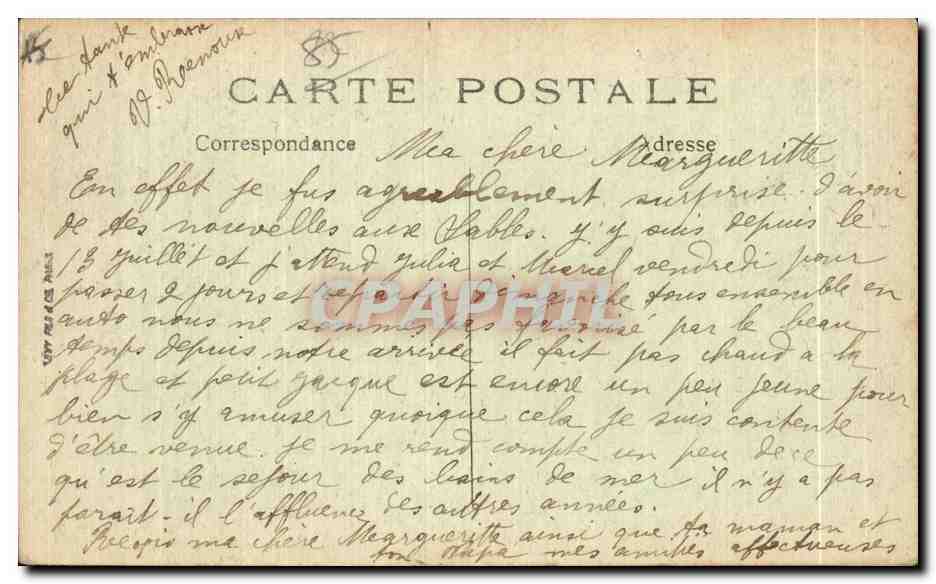 85
ta tante
qui t'embrasse
V. Renoux
CARTE POSTALE
Correspondance
Adresse
Ma chère Margueritte
En effet je fus agreablement surprise d'avoir
de tes nouvelles aux Sables. j'y suis depuis le
13 Juillet et j'attend Julia et Marcel vendredi pour
passer 2 jours et repartir dimanche tous ensemble en
auto nous ne sommes pas favorisé par le beau
temps depuis notre arrivée il fait pas chaud a la
plage et petit Jacque est encore un peu jeune pour
bien s'y amuser quoique cela je suis contente
d'être venue. je me rend compte un peu de ce
qu'est le sejour des bains de mer il n'y a pas
parait-il l'affluence des autres années.
Reçois ma chère Margueritte ainsi que ta maman et
ton papa mes amitiés affectueuses
LEVY FILS & CIE PARIS
CPAPHIL